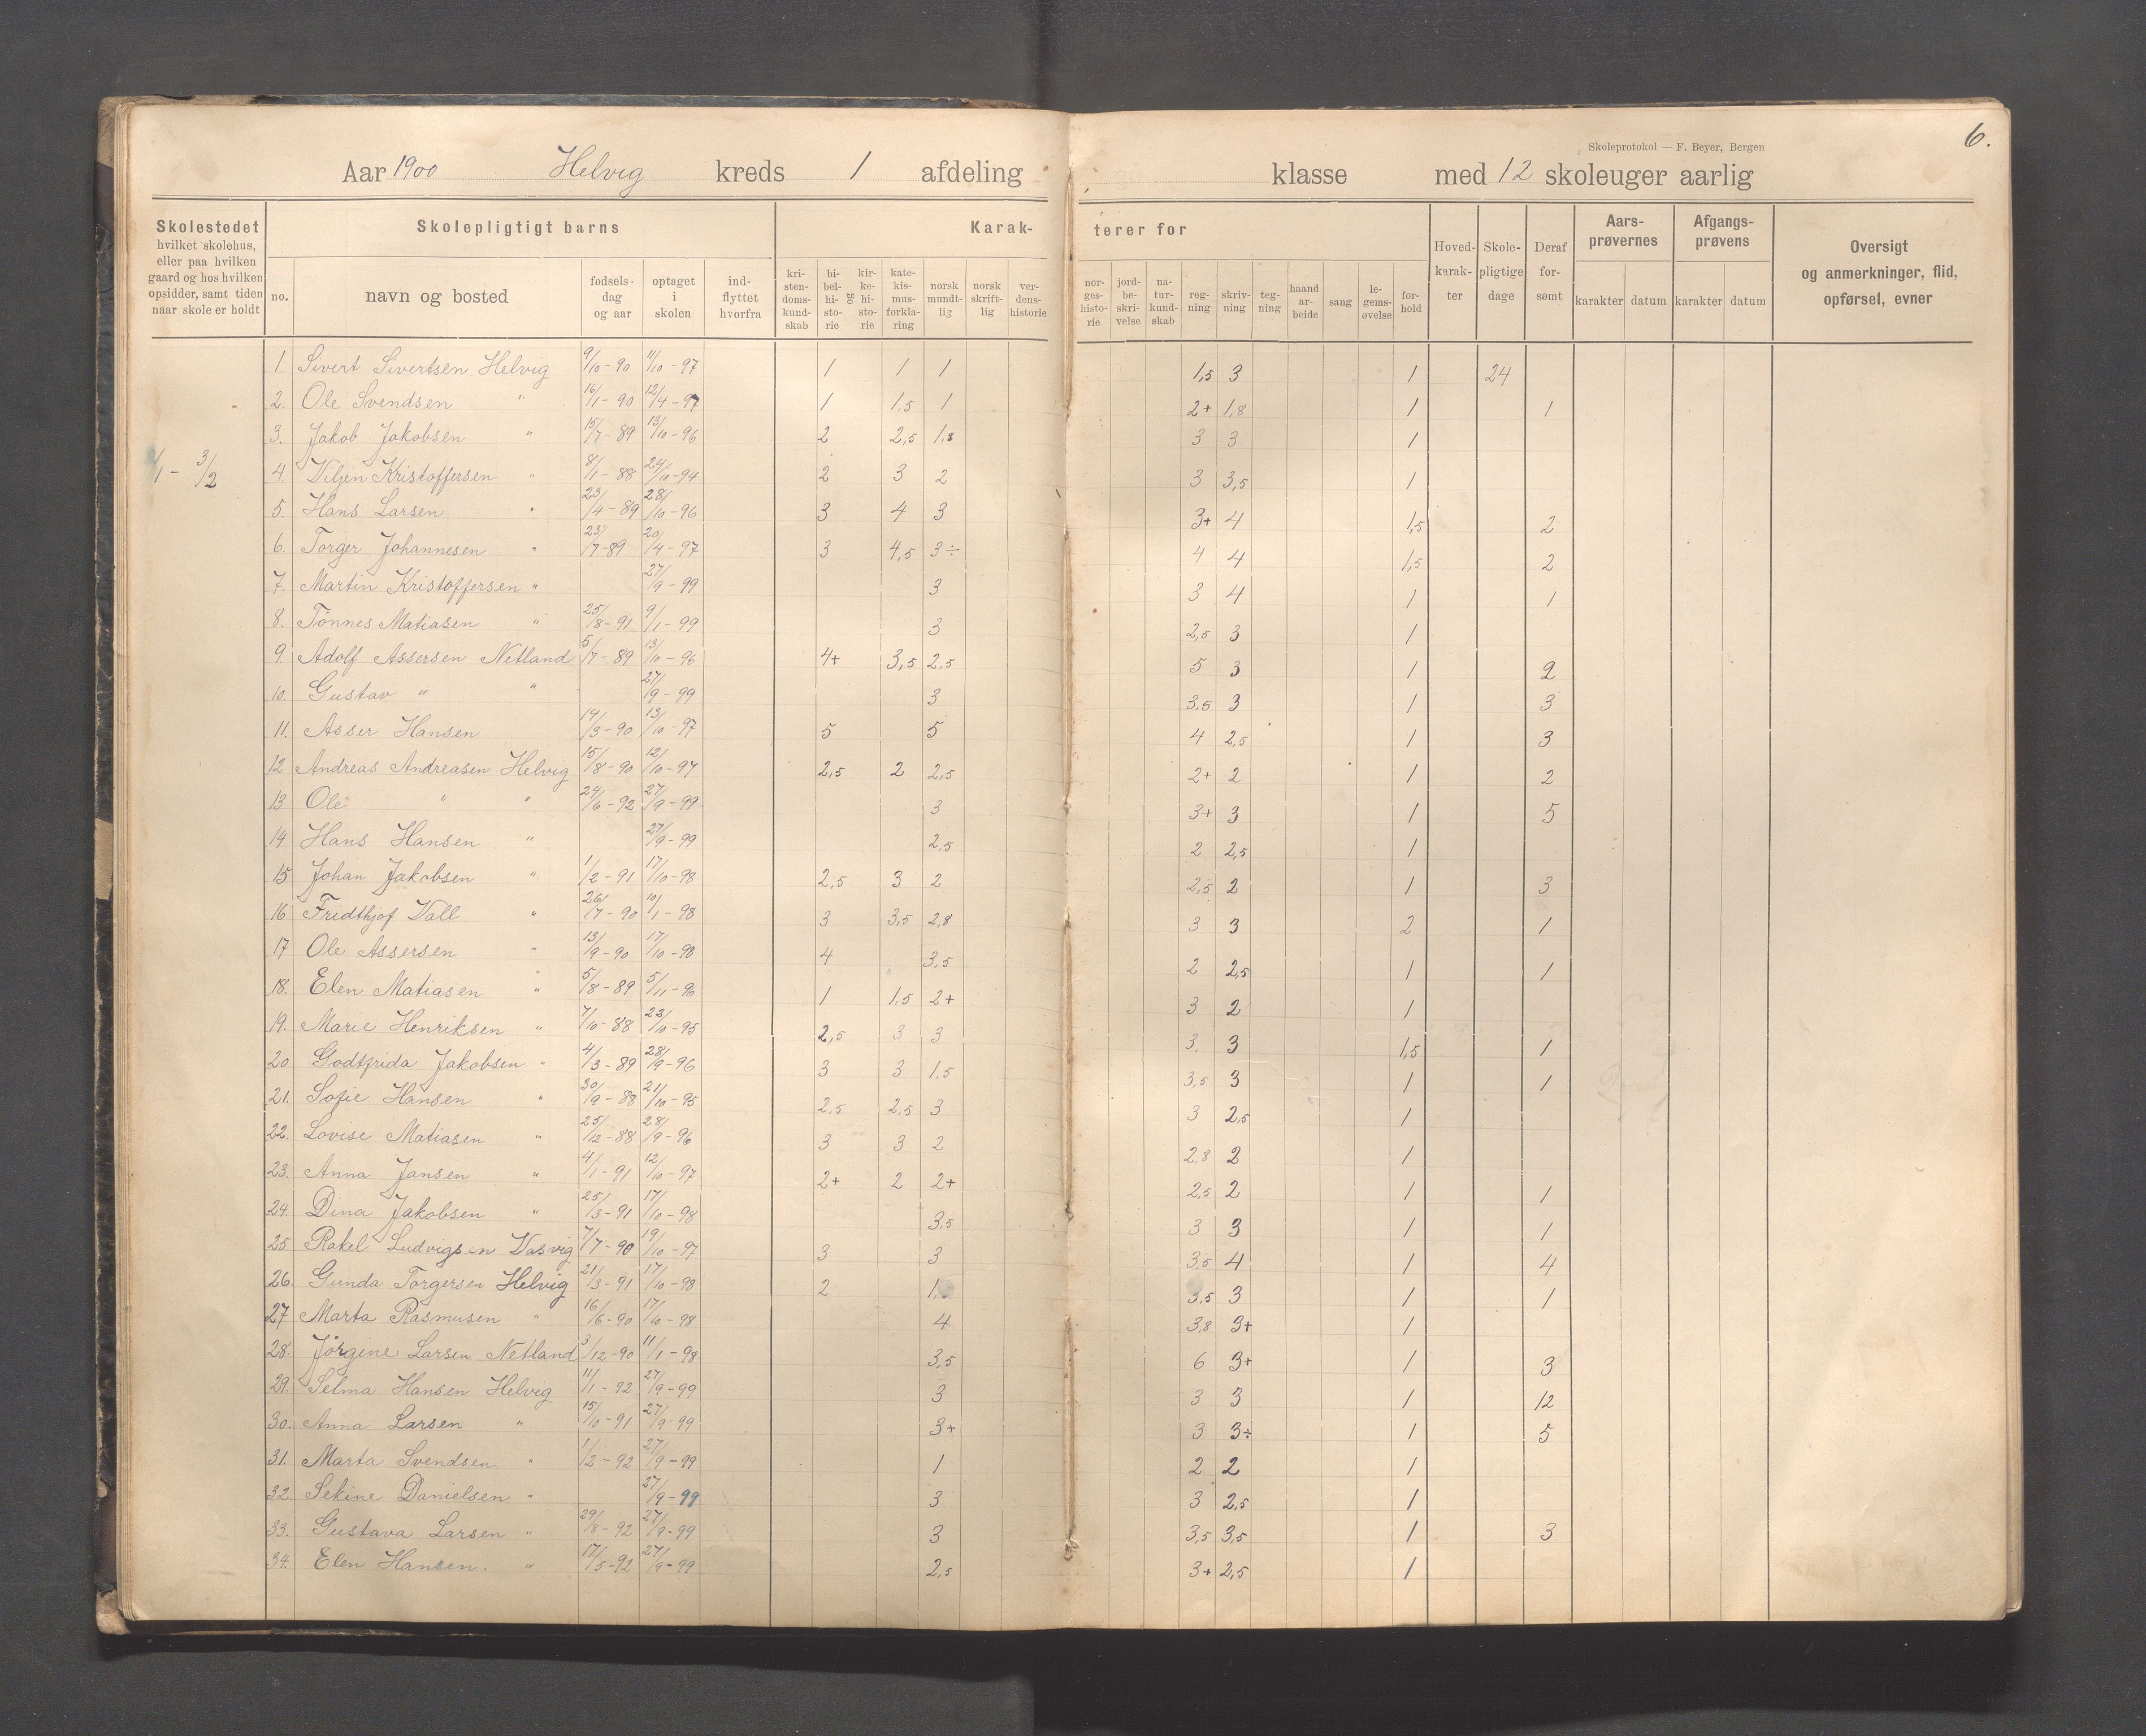 6.
Skoleprotokol — F. Beyer, Bergen
Aar 1900 Helvig kreds 1 afdeling klasse med 12 skoleuger aarlig
Skolestedet hvilket skolehus, eller paa hvilken gaard og hos hvilken opsidder, samt tiden naar skole er holdt
Skolepligtigt barns
no. navn og bosted fødselsdag og aar optaget i skolen indflyttet hvorfra
Karakterer for
kristendomskundskab bibelhistorie og kirkehistorie katekismusforklaring norsk mundtlig norsk skriftlig verdenshistorie norgeshistorie jordbeskrivelse naturkundskab regning skrivning tegning haandarbeide sang legemsøvelse forhold
Hovedkarakter Skolepligtige dage Deraf forsømt
Aarsprøvernes karakter datum
Afgangsprøvens karakter datum
Oversigt og anmerkninger, flid, opførsel, evner
1/1 - 3/2
1. Sivert Sivertsen Helvig 9/10-90 11/10-97 1 1 1 1,5 3 1 24
2. Ole Svendsen " 16/1-90 12/4-97 1 1,5 1 2+ 1,8 1 1
3. Jakob Jakobsen " 15/7-89 13/10-96 2 2,5 1,8 3 3 1
4. Viljen Kristoffersen " 8/1-88 24/10-94 2 3 2 3 3,5 1
5. Hans Larsen " 23/4-89 28/10-96 3 4 3 3+ 4 1,5 2
6. Torger Johannesen " 23/7-89 20/4-97 3 4,5 3÷ 4 4 1,5 2
7. Martin Kristoffersen " 27/9-99 3 3 4 1 1
8. Tönnes Matiasen " 25/8-91 9/1-99 3 2,5 3 1
9. Adolf Assersen Netland 5/7-89 13/10-96 4+ 3,5 2,5 5 3 1 2
10. Gustav " " 27/9-99 3 3,5 3 1 3
11. Asser Hansen 14/3-90 13/10-97 5 5 4 2,5 1 3
12 Andreas Andreasen Helvig 15/8-90 12/10-97 2,5 2 2,5 2+ 2 1 2
13 Ole " " 24/6-92 27/9-99 3 3+ 3 1 5
14 Hans Hansen " 27/9-99 2,5 2 2,5 1
15 Johan Jakobsen " 1/2-91 17/10-98 2,5 3 2 2,5 2 1 3
16 Fridthjof Vall " 26/7-90 10/1-98 3 3,5 2,8 3 3 2 1
17 Ole Assersen " 13/9-90 17/10-98 4 3,5 2 2,5 1 1
18. Elen Matiasen " 5/8-89 5/11-96 1 1,5 2+ 3 2 1
19. Marie Henriksen " 7/10-88 23/10-95 2,5 3 3 3 3 1,5 1
20 Godtfrida Jakobsen " 4/3-89 28/9-96 3 3 1,5 3,5 3 1 1
21. Sofie Hansen " 30/9-88 21/10-95 2,5 2,5 3 3 2,5 1
22. Lovise Matiasen " 25/12-88 28/9-96 3 3 2 2,8 2 1
23. Anna Jansen " 4/1-91 12/10-97 2+ 2 2+ 2,5 2 1 1
24. Dina Jakobsen " 25/3-91 17/10-98 3,5 3 3 1 1
25 Rakel Ludvigsen Vasvig 7/7-90 19/10-97 3 3 3,5 4 1 4
26. Gunda Torgersen Helvig 21/3-91 17/10-98 2 1, 3,5 3 1 1
27 Marta Rasmusen " 16/6-90 17/10-98 4 3,8 3+ 1
28. Jörgine Larsen Netland 3/12-90 11/1-98 3,5 6 3+ 1 3
29. Selma Hansen Helvig 11/1-92 27/9-99 3 3 3 1 12
30. Anna Larsen " 15/10-91 27/9-99 3+ 3 3÷ 1 5
31. Marta Svendsen " 1/2-92 27/9-99 1 2 2 1
32. Sekine Danielsen " 27/9-99 3 3 2,5 1
33. Gustava Larsen " 29/8-92 27/9-99 3 3,5 3,5 1 3
34. Elen Hansen. " 17/5-92 27/9-99 2,5 3+ 2,5 1